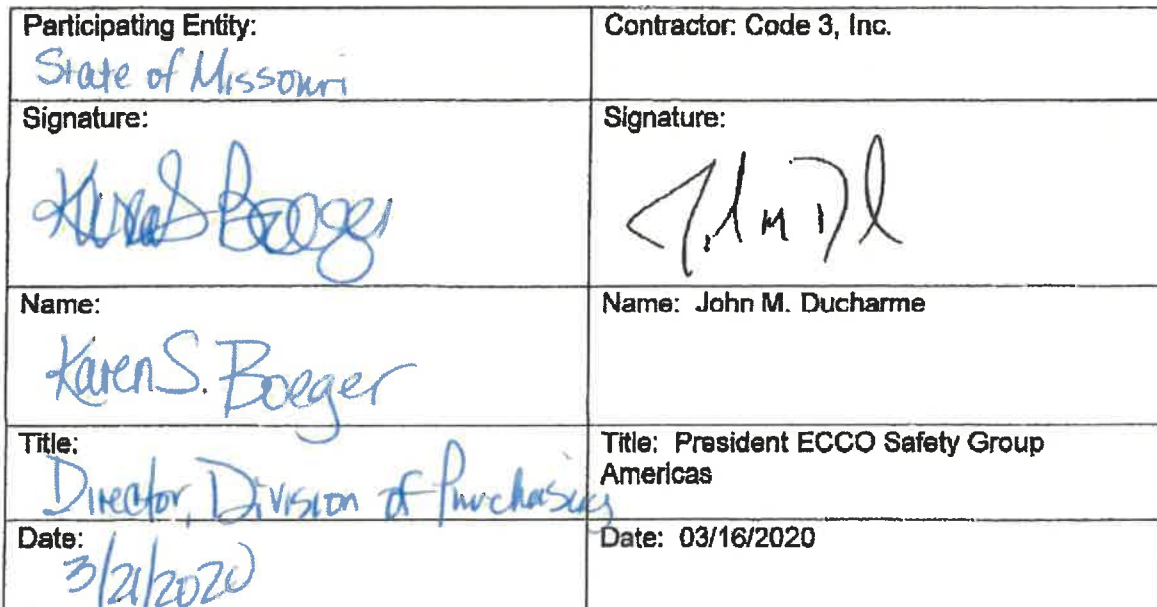 Participating Entity:
State of Missouri
Contractor: Code 3, Inc.
Signature:
Karen S Boeger
Signature:
Name:
Karen S. Boeger
Name: John M. Ducharme
Title:
Director, Division of Purchasing
Title: President ECCO Safety Group
Americas
Date:
3/21/2020
Date: 03/16/2020